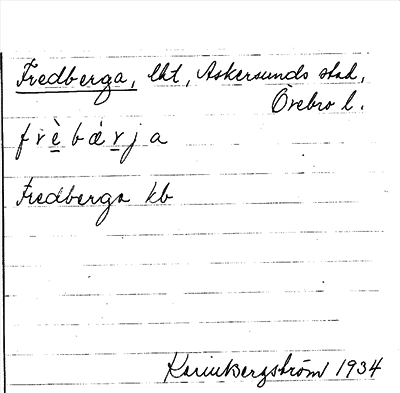 Fredberga, lht, Askersunds stad,
Örebro l.
frèbærja
Fredberga kb
Karin Bergström 1934